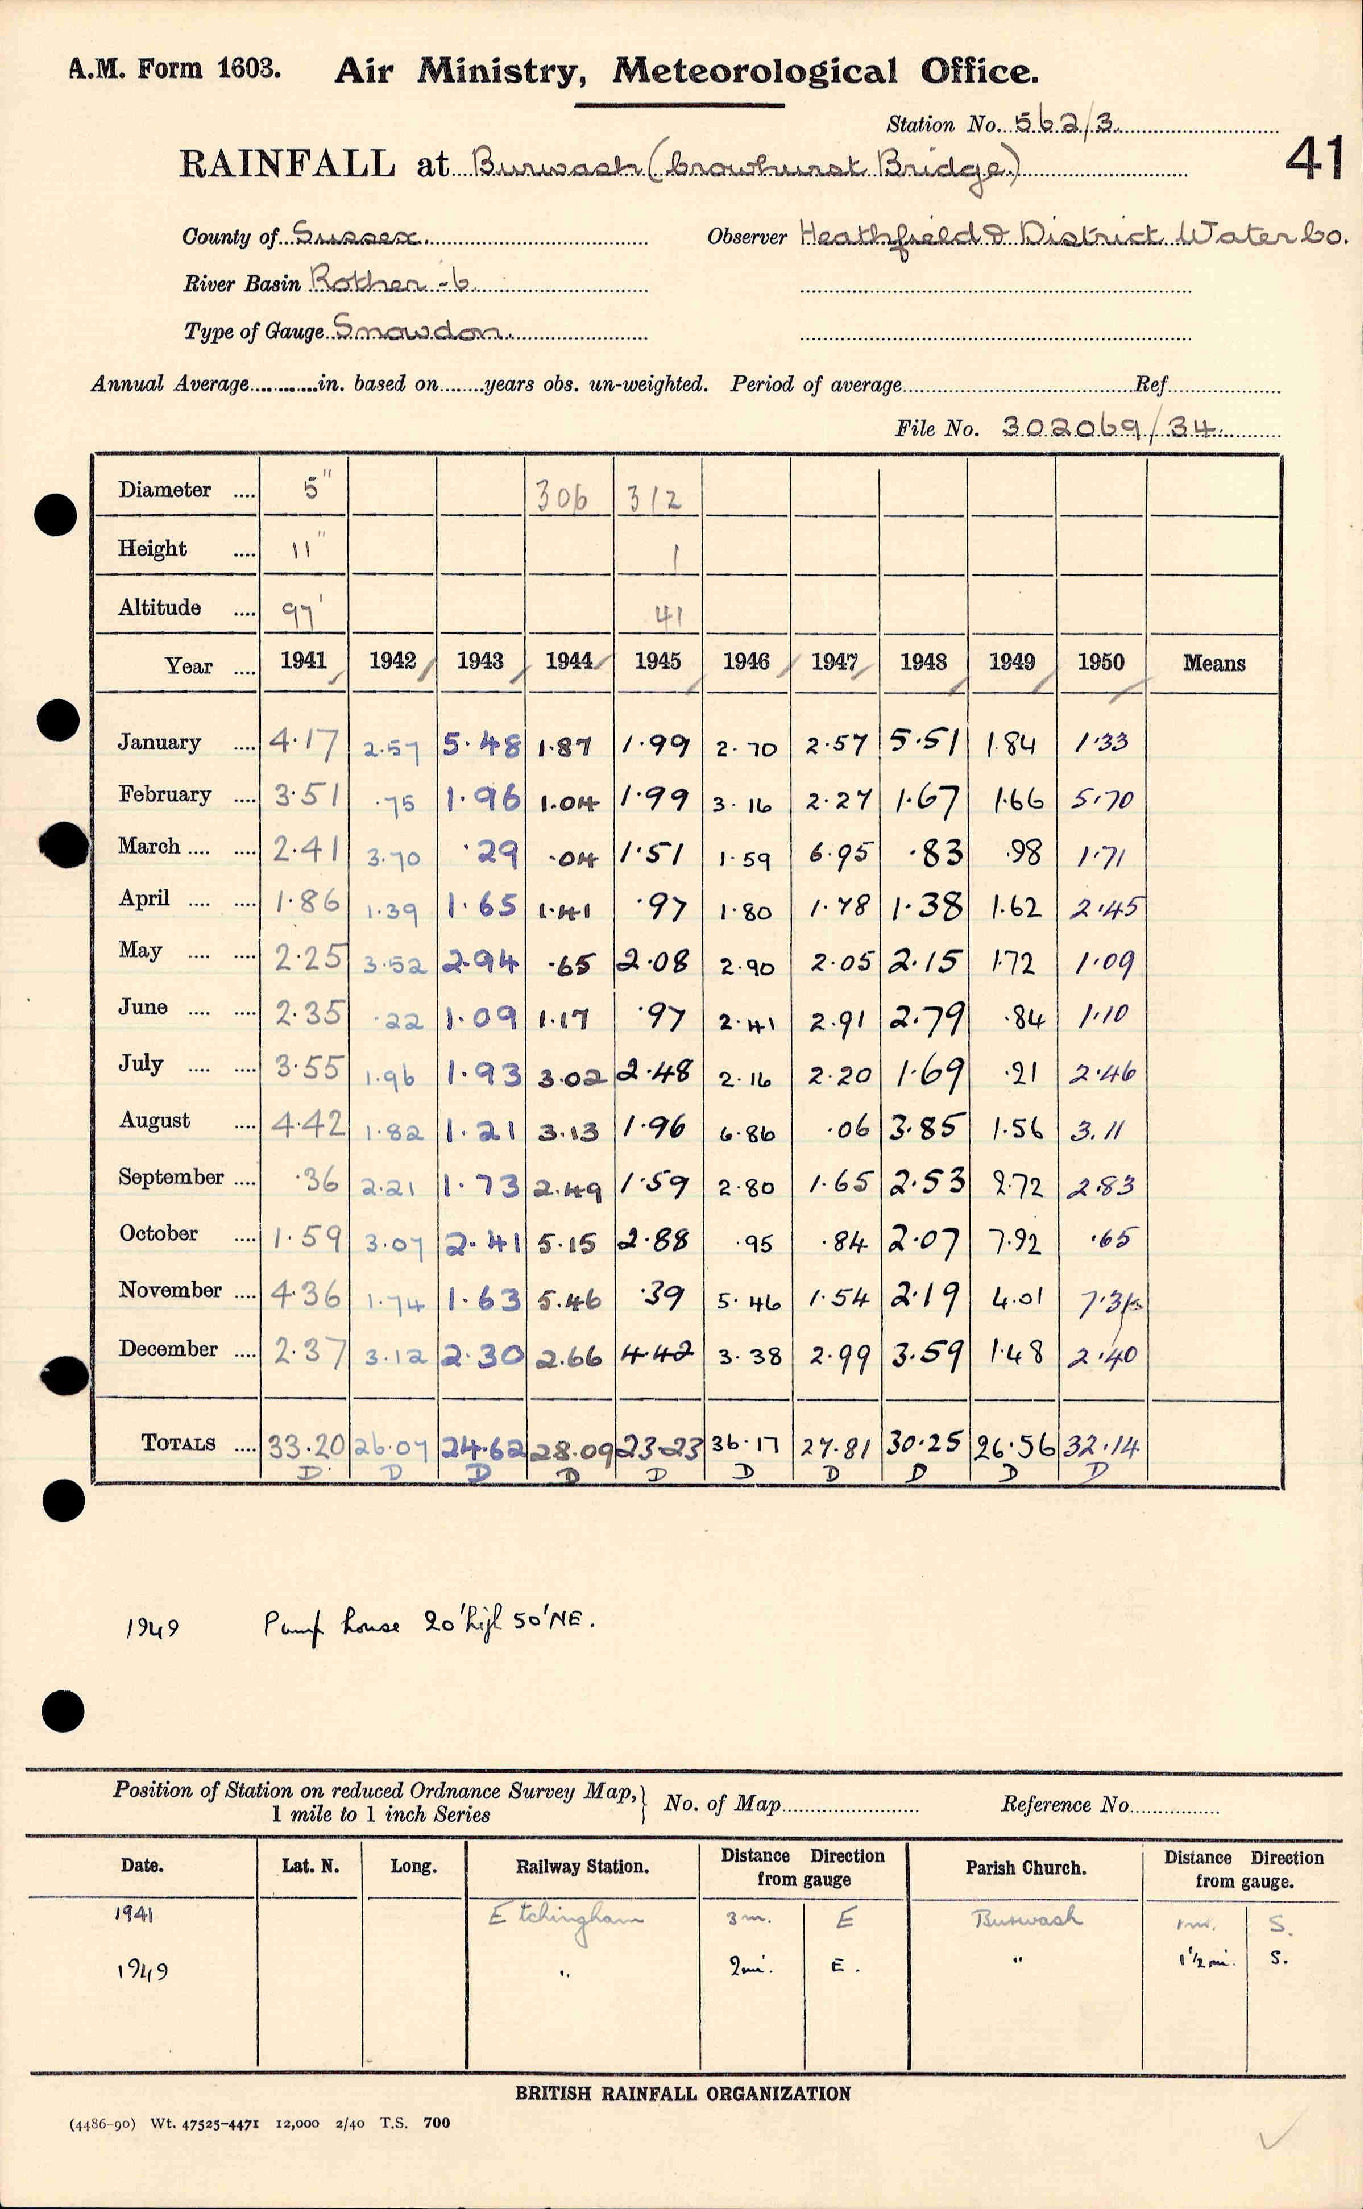 A.M. Form 1603. Air Ministry, Meteorological Office.
Station No. 562/3
41
RAINFALL at Burwash (Crowhurst Bridge)
County of Sussex. Observer Heathfield & District Water Co.
River Basin Rother - 6
Type of Gauge Snowdon.
Annual Average............in. based on.......years obs. un-weighted. Period of average.......... Ref..........
File No. 302069/34
Diameter .... 5" 306 312
Height .... 11" 1
Altitude .... 97' 41
Year .... 1941 1942 1943 1944 1945 1946 1947 1948 1949 1950 Means
January .... 4.17 2.57 5.48 1.87 1.99 2.70 2.57 5.51 1.84 1.33
February .... 3.51 .75 1.96 1.04 1.99 3.16 2.27 1.67 1.66 5.70
March .... .... 2.41 3.70 .29 .04 1.51 1.59 6.95 .83 .98 1.71
April .... .... 1.86 1.39 1.65 1.41 .97 1.80 1.78 1.38 1.62 2.45
May .... .... 2.25 3.52 2.94 .65 2.08 2.90 2.05 2.15 1.72 1.09
June .... .... 2.35 .22 1.09 1.17 .97 2.41 2.91 2.79 .84 1.10
July .... .... 3.55 1.96 1.93 3.02 2.48 2.16 2.20 1.69 .21 2.46
August .... 4.42 1.82 1.21 3.13 1.96 6.86 .06 3.85 1.56 3.11
September .... .36 2.21 1.73 2.49 1.59 2.80 1.65 2.53 2.72 2.83
October .... 1.59 3.07 2.41 5.15 2.88 .95 .84 2.07 7.92 .65
November .... 4.36 1.74 1.63 5.46 .39 5.46 1.54 2.19 4.01 7.31
December .... 2.37 3.12 2.30 2.66 4.42 3.38 2.99 3.59 1.48 2.40
TOTALS .... 33.20 26.07 24.62 28.09 23.23 36.17 27.81 30.25 26.56 32.14
D D D D D D D D D D
1949 Pump house 20' high 50' NE.
Position of Station on reduced Ordnance Survey Map, } No. of Map.......... Reference No..........
1 mile to 1 inch Series
Date. Lat. N. Long. Railway Station. Distance Direction from gauge Parish Church. Distance Direction from gauge.
1941 Etchingham 3 m. E Burwash 1 m. S.
1949 " 2 mi. E. " 1½ mi. S.
BRITISH RAINFALL ORGANIZATION
(4486-90) Wt. 47525-4471 12,000 2/40 T.S. 700